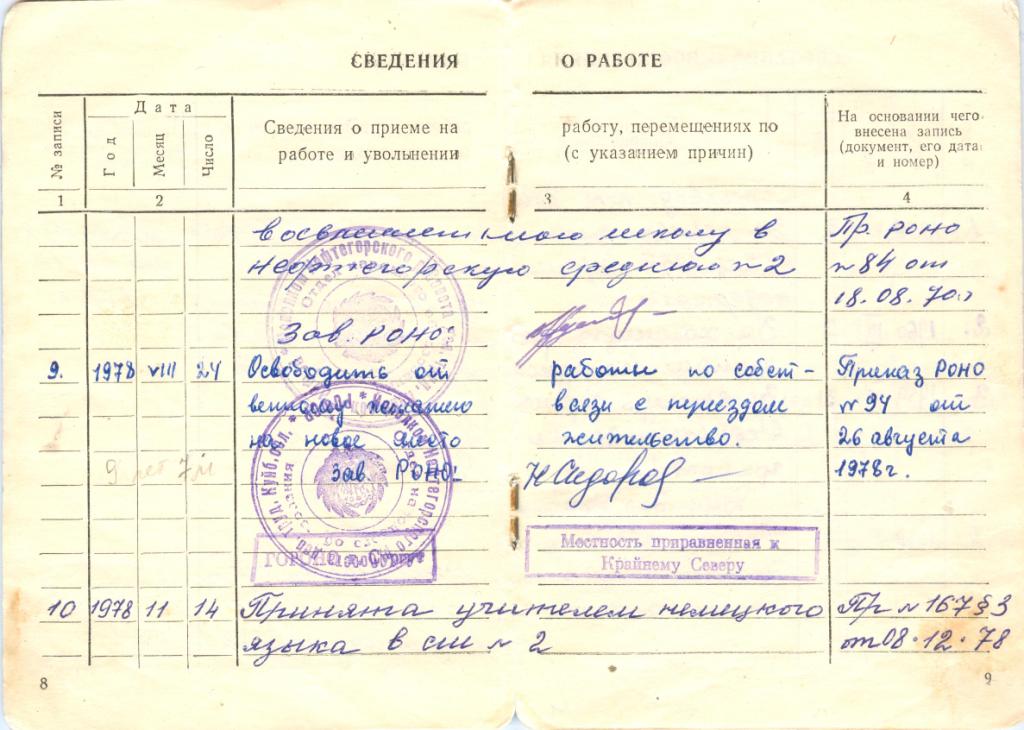 СВЕДЕНИЯ О РАБОТЕ
№ записи
Дата
Год
Месяц
Число
Сведения о приеме на работу, перемещениях по
работе и увольнении (с указанием причин)
На основании чего
внесена запись
(документ, его дата
и номер)
1 2 3 4
школу в Пр. РОНО
Нефтегорскую среднюю №2 №84 от
18.08.70г
Зав. РОНО:
9. 1978 VIII 24 Освободить от работы по собст- Приказ РОНО
венному желанию в связи с переездом №94 от
на новое место жительство. 26 августа
9 лет 7 м Зав. РОНО: Н Сидоров 1978г.
ГОРОНО г. Сургут
Местность приравненная к
Крайнему Северу
10 1978 11 14 Принята учителем немецкого Пр №167 §3
языка в сш №2 от 08.12.78
8 9